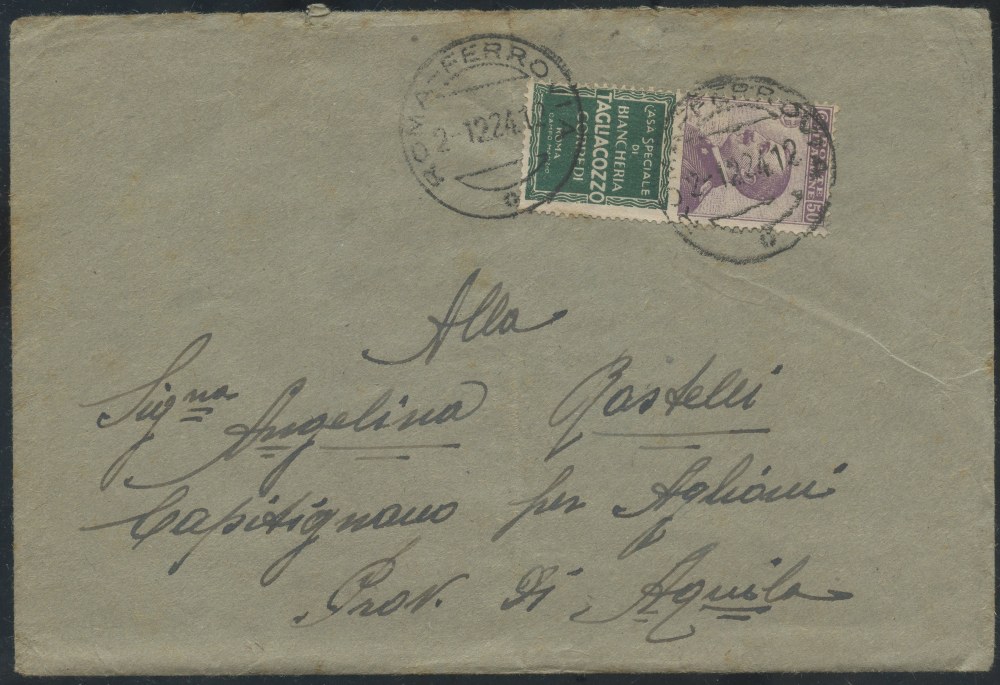 ROMA-FERROVIA
2-12.24.1
CASA SPECIALE
DI
BIANCHERIA
TAGLIACOZZO
CORREDI
ROMA
CAMPO MARZIO
50
Alla
Sig.na Angelina Rastelli
Capitignano per Aglioni
Prov. Di Aquila